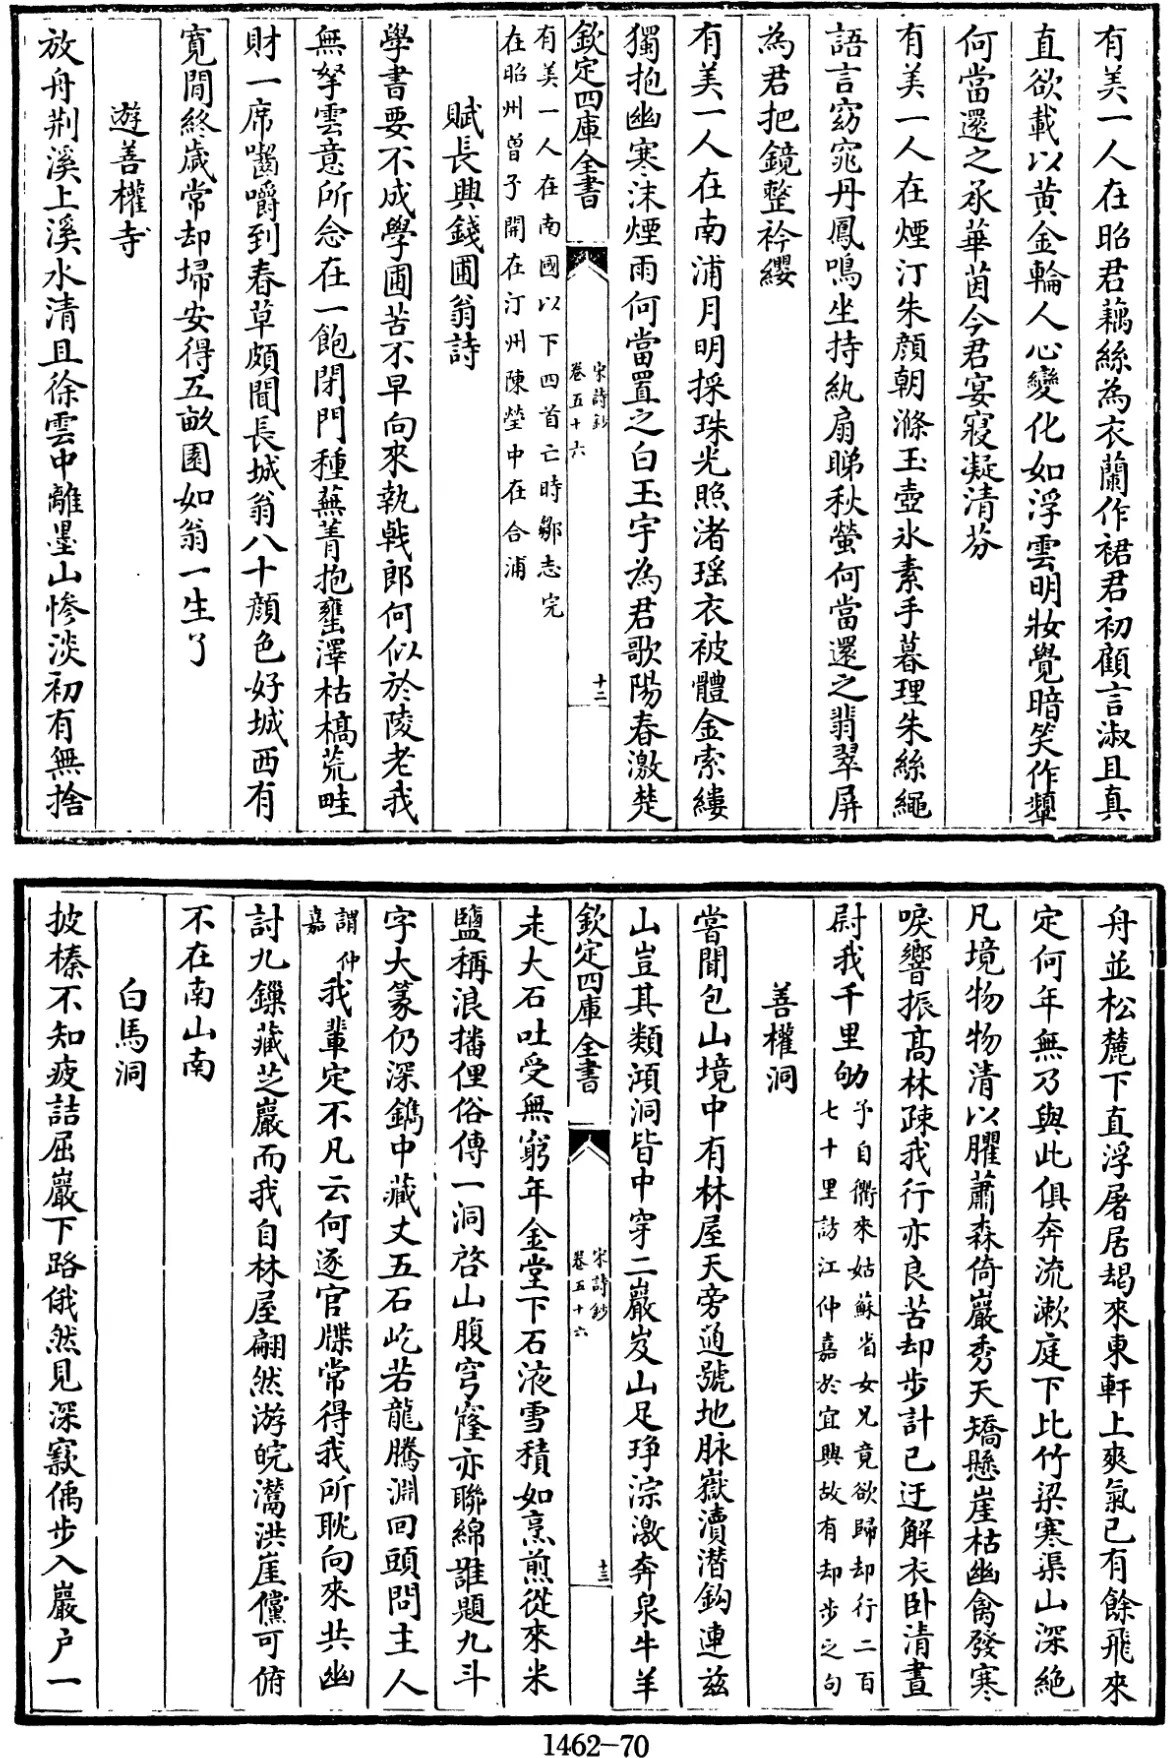 有美一人在昭君藕絲為衣蘭作裙君初顧言淑且真
直欲載以黄金輪人心變化如浮雲明妝覺暗笑作顰
何當還之承華茵今君宴寢凝清芬
有美一人在煙汀朱顔朝滌玉壺氷素手暮理朱絲繩
語言窈窕丹鳳鳴坐持紈扇睇秋螢何當還之翡翠屏
為君把鏡整衿纓
有美一人在南浦月明採珠光照渚瑶衣被體金索縷
獨抱幽寒沫煙雨何當置之白玉宇為君歌陽春激楚
欽定四庫全書
宋詩鈔
卷五十六
十二
有美一人在南國以下四首亡時鄒志完
在昭州曾子開在汀州陳瑩中在合浦
賦長興錢圃翁詩
學書要不成學圃苦不早向來執戟郎何似於陵老我
無孥雲意所念在一飽閉門種蕪菁抱甕澤枯槁荒畦
財一席噛嚼到春草頗聞長城翁八十顔色好城西有
寛閒終歲常却埽安得五畝園如翁一生了
遊善權寺
放舟荆溪上溪水清且徐雲中離墨山慘淡初有無捨
舟並松麓下直浮屠居朅來東軒上爽氣已有餘飛來
定何年無乃與此俱奔流漱庭下比竹梁寒渠山深絶
凡境物物清以臞蕭森倚巖秀天矯懸崖枯幽禽發寒
唳響振高林疎我行亦良苦却步計已迂解衣卧清晝
尉我千里劬
予自衢來姑蘇省女兄竟欲歸却行二百
七十里訪江仲嘉於宜興故有却步之句
善權洞
嘗聞包山境中有林屋天旁通號地脉嶽瀆潜鈎連兹
山豈其類澒洞皆中穿二巖岌山足琤淙激奔泉牛羊
欽定四庫全書
宋詩鈔
卷五十六
十三
走大石吐受無窮年金堂下石液雪積如烹煎從來米
鹽稱浪播俚俗傳一洞啓山腹穹窿亦聯綿誰題九斗
字大篆仍深鐫中藏丈五石屹若龍騰淵回頭問主人
謂仲
嘉
我輩定不凡云何逐官牒常得我所耽向來共幽
討九鏁藏芝巖而我自林屋翩然游皖灊洪崖儻可俯
不在南山南
白馬洞
披榛不知疲詰屈巖下路俄然見深窾偊步入巖户一
1462—70